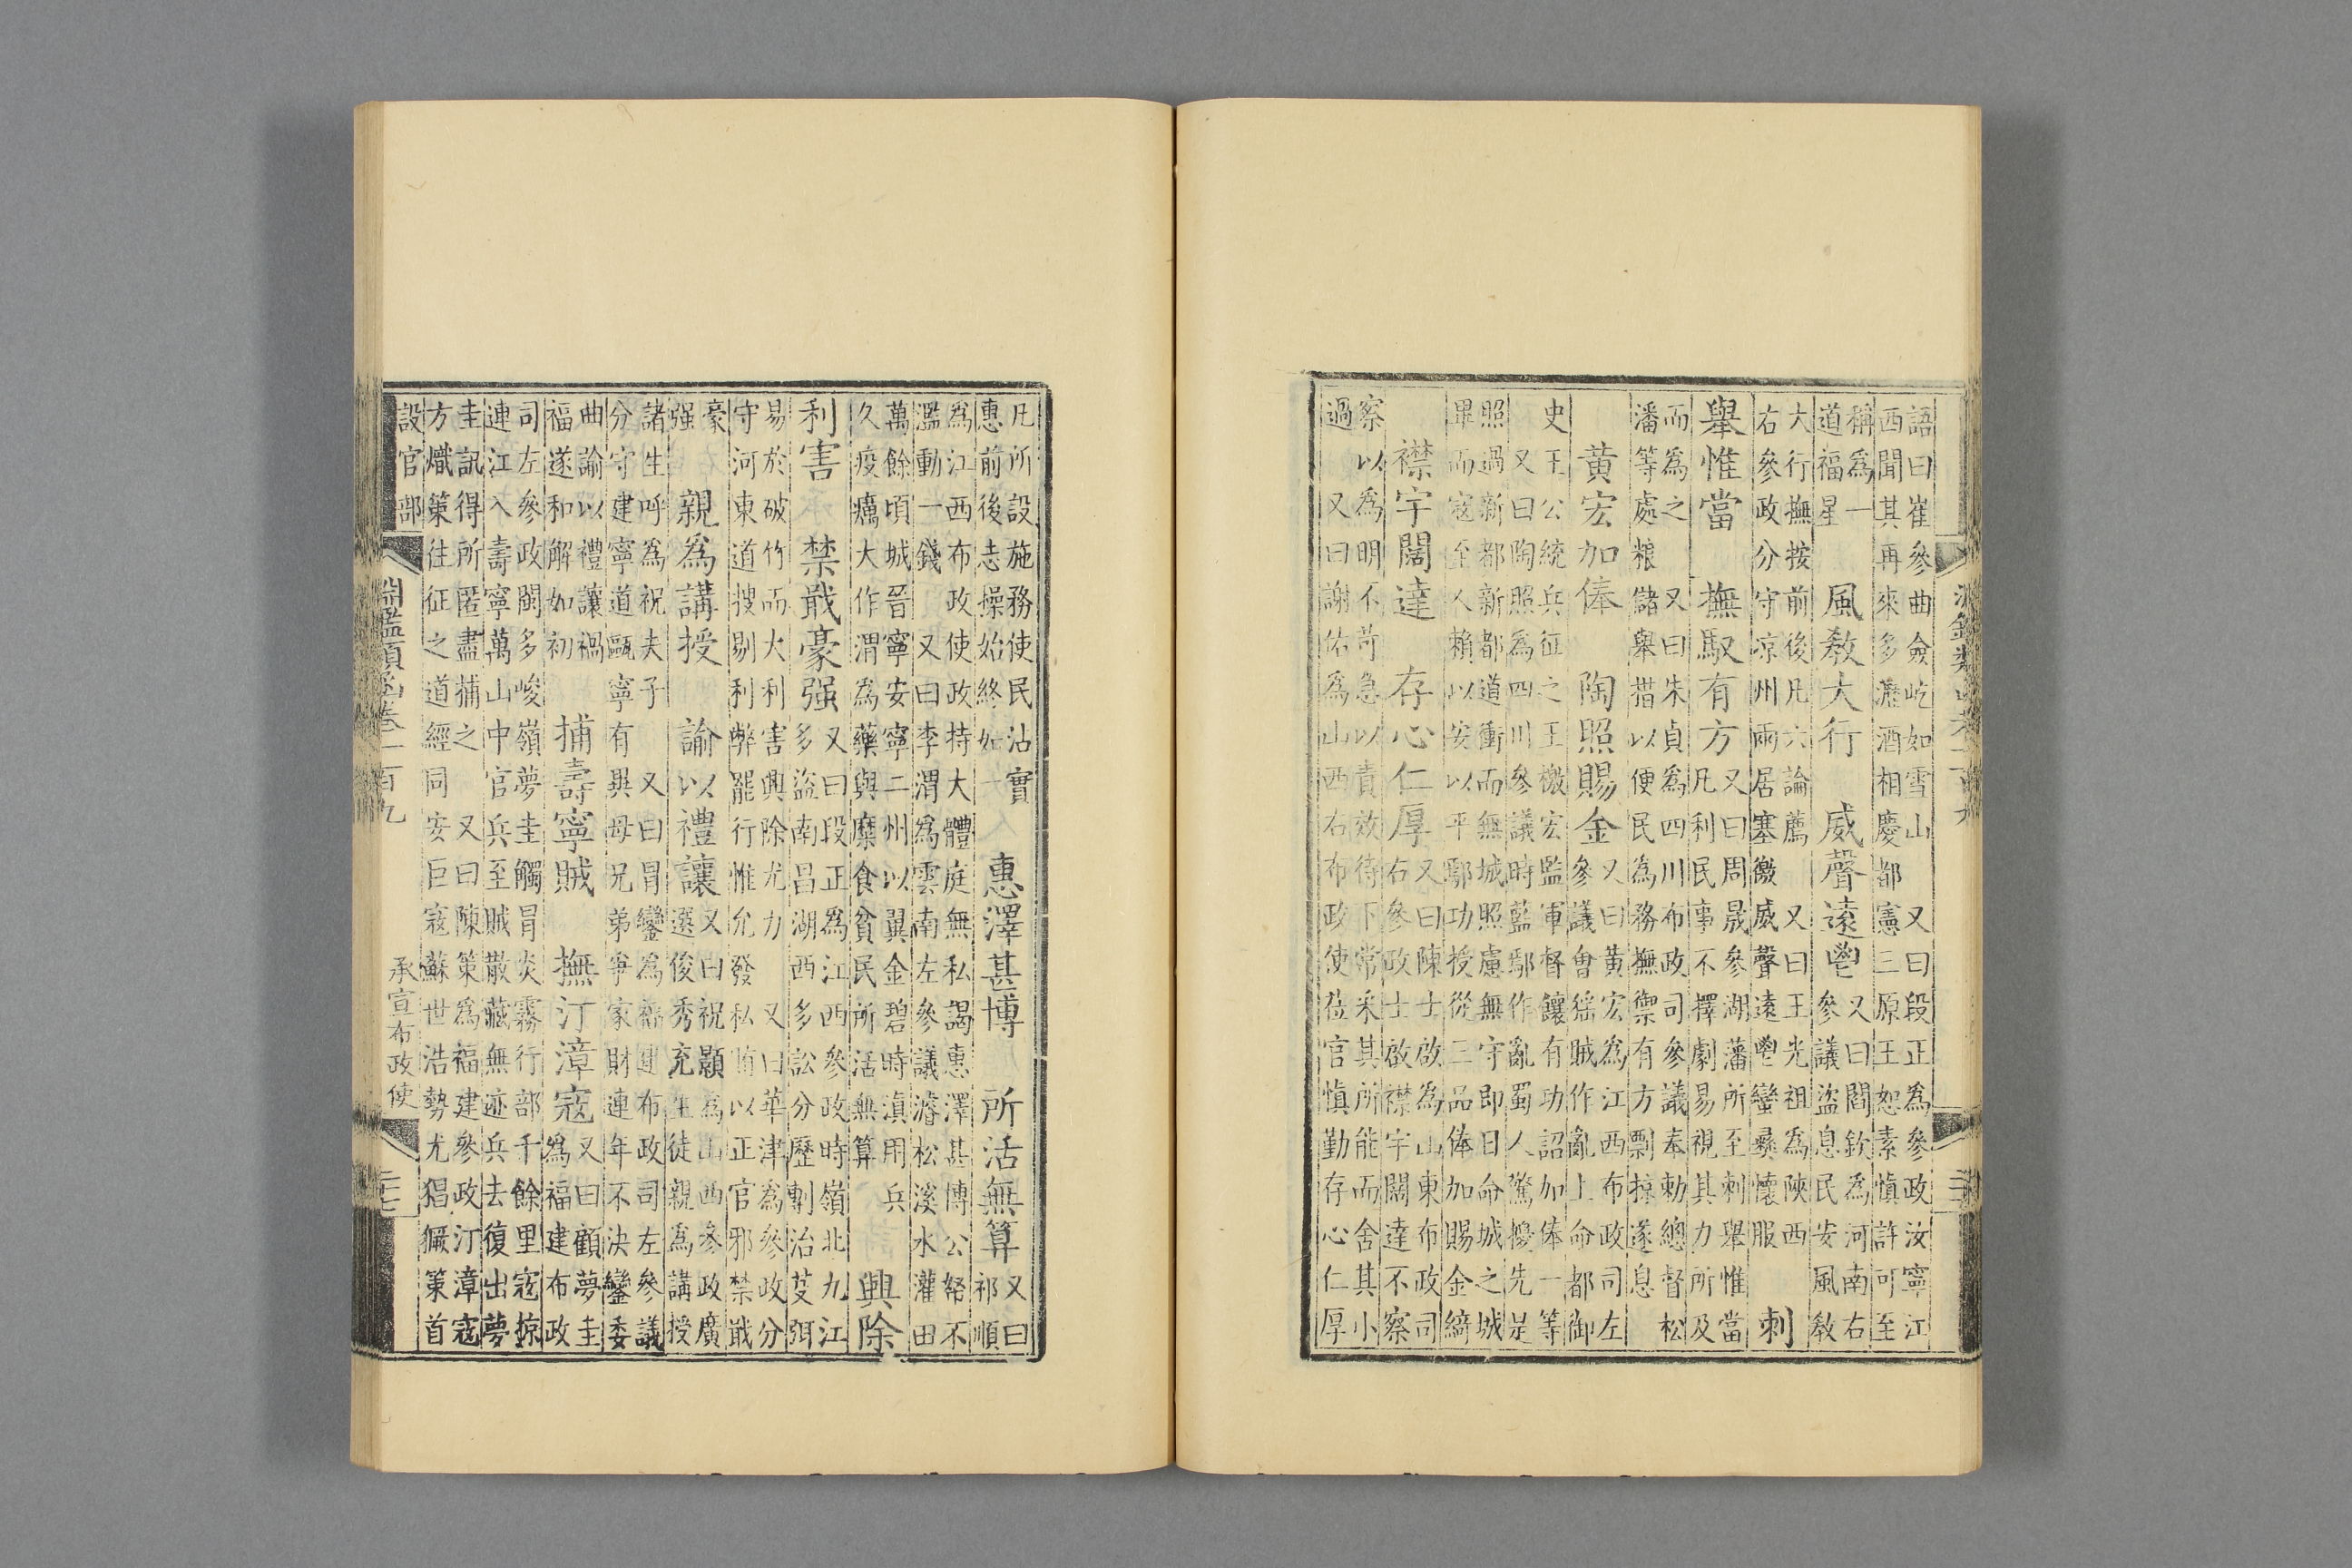 語曰崔參曲僉屹如雪山 又曰段正為參政汝寧江
西聞其再來多瀝酒相慶都憲三原王恕素慎許可至
稱為一
道福星
風教大行 威聲遠鬯
又曰閻欽為河南右
參議盜息民安風教
大行撫按前後凡六論薦 又曰王光祖為陝西
右參政分守凉州兩居塞徼威聲遠鬯蠻彞懷服
刺
舉惟當 撫馭有方
又曰周晟參湖藩所至刺舉惟當
凡利民事不擇劇易視其力所及
而為之 又曰朱貞為四川布政司參議奉勅總督松
潘等處粮儲舉措以便民為務撫禦有方剽掠遂息
黄宏加俸 陶照賜金
又曰黄宏為江西布政司左
參議會猺賊作亂上命都御
史王公統兵征之王檄宏監軍督饟有功詔加俸一等
又曰陶照為四川參議時藍鄢作亂蜀人驚擾先是
照過新都新都道衝而無城照慮無守即日命城之城
畢而寇至人賴以安以平鄢功授從三品俸加賜金綺
襟宇闊達 存心仁厚
又曰陳士啟為山東布政司
右參政士啟襟宇闊達不察
察以為明不苛急以責效待下常采其所能而舍其小
過 又曰謝佑為山西右布政使莅官慎勤存心仁厚
凡所設施務使民沾實
惠前後志操始終如一
惠澤甚博 所活無算
又曰
祁順
為江西布政使政持大體庭無私謁惠澤甚博公帑不
濫動一錢 又曰李渭為雲南左參議濬松溪水灌田
萬餘頃城晉寧安寧二州以翼金碧時滇用兵
久疫癘大作渭為藥與糜食貧民所活無算
興除
利害 禁戢豪强
又曰段正為江西參政時嶺北九江
多盜南昌湖西多訟分歷剸治芟弭
易於破竹而大利害興除尤力 又曰華津為參政分
守河東道搜剔利弊罷行惟允發私賄以正官邪禁戢
豪
强
親為講授 諭以禮讓
又曰祝顥為山西參政廣
選俊秀充生徒親為講授
諸生呼為祝夫子 又曰冒鸞為福建布政司左參議
分守建寧道甌寧有異母兄弟爭家財連年不決鸞委
曲諭以禮讓禍
福遂和解如初
捕壽寧賊 撫汀漳寇
又曰顧夢圭
為福建布政
司左參政閩多峻嶺夢圭觸冒炎霧行部千餘里寇掠
連江入壽寧萬山中官兵至賊散藏無迹兵去復出夢
圭訊得所匿盡捕之 又曰陳策為福建參政汀漳寇
方熾策往征之道經同安巨寇蘇世浩勢尤猖獗策首
設官部
淵鑑類函卷一百九
承宣布政使